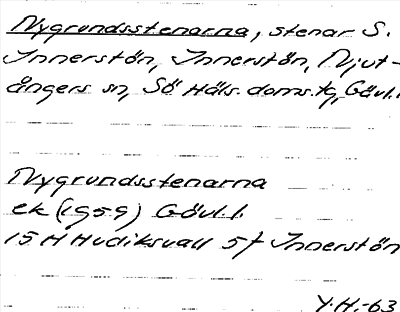 Nygrundsstenarna, stenar S.
Innerstön, Innerstön, Njut-
ångers sn, Sö Häls. doms. tg, Gävl. l.
Nygrundsstenarna
ek (1959) Gävl. l.
15 H Hudiksvall 5f Innerstön
Y.H.-63